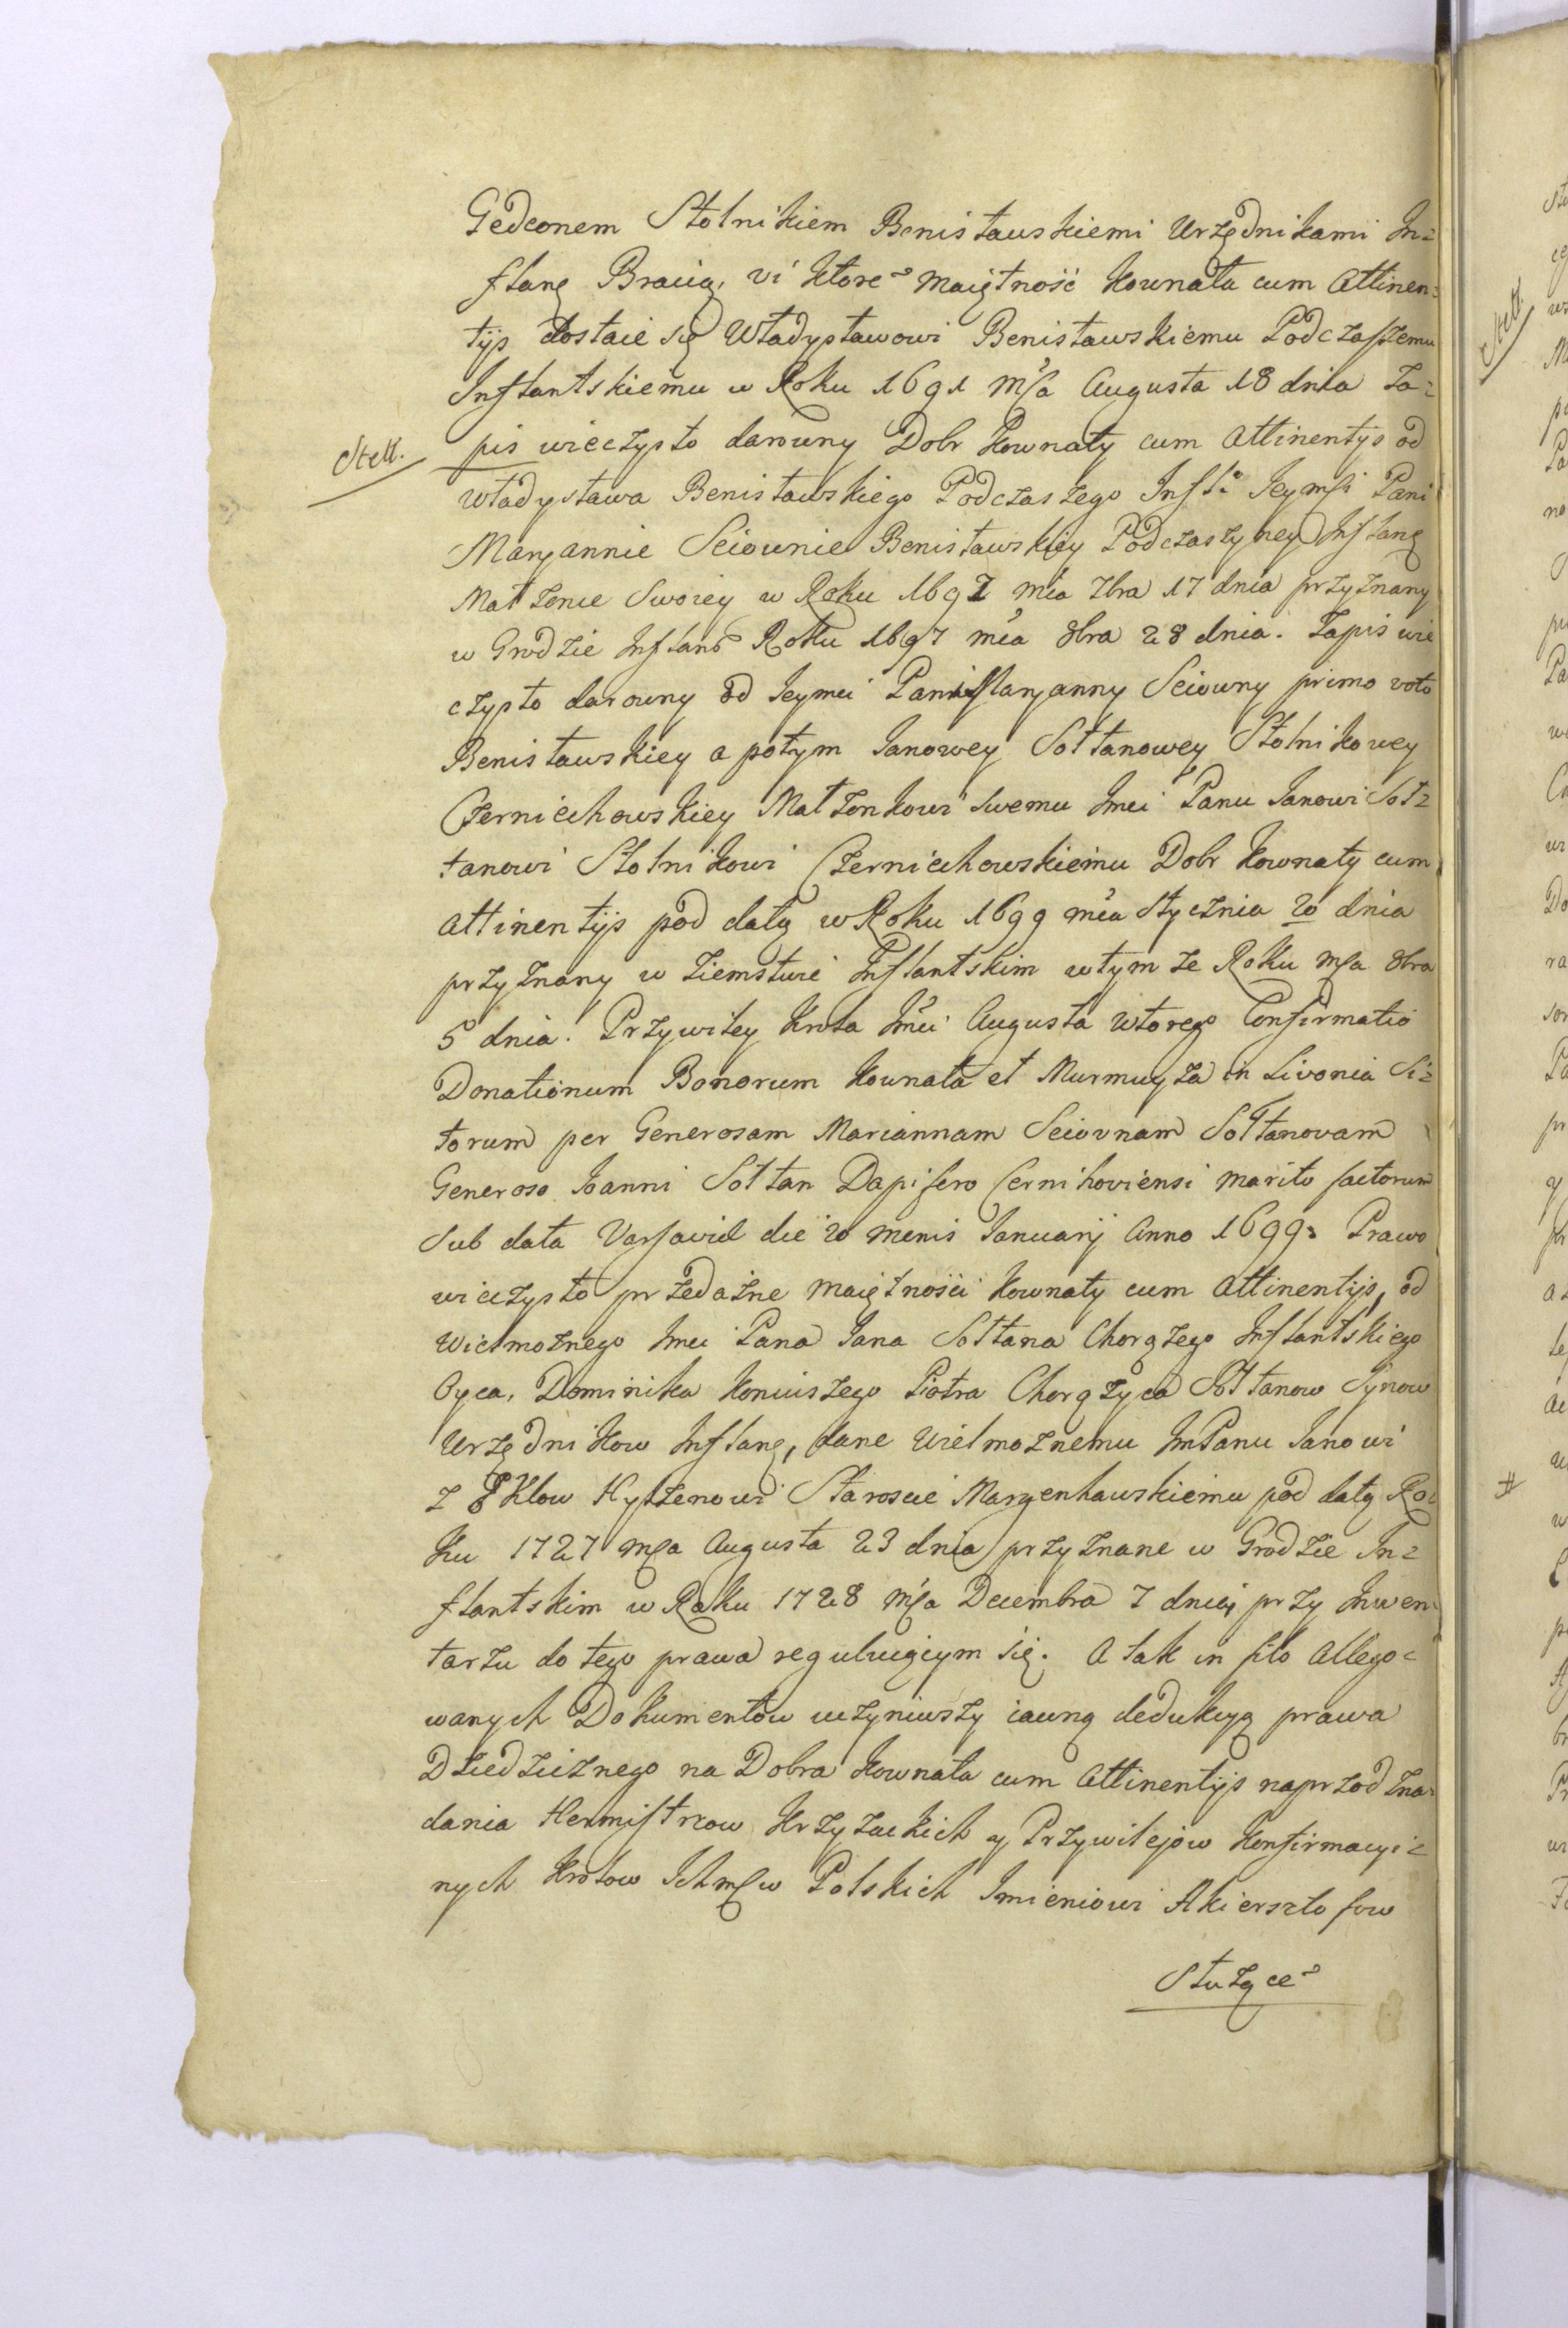 Gedeonem Stolnikiem Benisławskiemi Urzędnikami In=
flang Bracią, vi ktore maiętność Kownata cum Attinen=
tijs dostaie się Władysławowi Benisławskiemu Podczaszemu
Inflantskiemu w Roku 1691 mca Augusta 18 dnia Za=
Stell.
pis wieczysto darowny Dobr Kownaty cum Attinentijs od
Władysława Benisławskiego Podczaszego Infl: Jeymci Pani
Maryannie Seiownie Benisławskiey Podczaszyney Inflang
Małżonce Swoiey w Roku 1692 mca 7bra 17 dnia przyznany
w Grodzie Inflan Roku 1697 mca 8bra 28 dnia. Zapis wie
czysto darowny od Jeymci Pani Maryanny Seiowny primo voto
Benisławskiey a potym Janowey Sołtanowey Stolnikowey
Czerniechowskiey Małżonkowi Swemu Jmci Panu Janowi Soł=
tanowi Stolnikowi Czerniechowskiemu Dobr Kownaty cum
Attinentijs pod datą w Roku 1699 mca Stycznia 20 dnia
przyznany w Ziemstwie Inflantskim w tym ze Roku mca 8bra
5 dnia. Przywiley Krola Jmci Augusta Wtorego Confirmatio
Donationum Bonorum Kownata et Murmuyza in Livonia Si=
torum per Generosam Mariannam Seiovnam Sołtanovam
Generoso Joanni Sołtan Dapifero Cernihoviensi marito factorum
Sub data Varsavia die 20 mensis Januarij Anno 1699. Prawo
wieczysto przedażne maiętności Kownaty cum Attinentijs, od
Wielmożnego Jmci Pana Jana Sołtana Chorążego Inflantskiego
Oyca, Dominika Koniuszego Piotra Chorążyca Sołtanow Synow
Urzędnikow Inflang, dane Wielmożnemu Jmć Panu Janowi
z Eklow Hylzenowi Staroscie Maryenhauskiemu pod datą Ro=
ku 1727 mca Augusta 23 dnia przyznane w Grodzie In=
flantskim w Roku 1728 mca Decembra 7 dnia, przy Inwen=
tarzu do tego prawa reguluiącym się. A tak in filo Allego=
wanych Dokumentow uczyniwszy iawną dedukcyą prawa
Dziedzicznego na Dobra Kownata cum Attinentijs naprzod zna=
dania Hermistrzow Krzyżackich y Przywilejow Konfirmacyi=
nych Krolow Ichmciow Polskich Imieniowi Akiersztofow
Służące